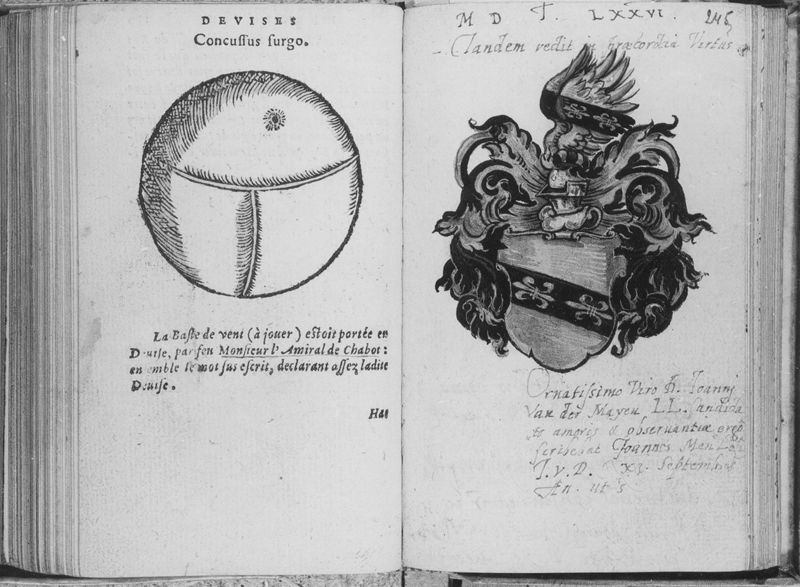 DEVISES
Concussus surgo.
La Balle de vent (à jouer) estoit portée en
Deuise, par feu Monsieur l'Amiral de Chabot:
ensemble le mot sus escrit, declarant assez ladite
Deuise.
Hac
M D LXXVI.
245
redit in præcordia Virtus
Ornatissimo Viro D. Joanni
Van der Mayen LL. Candida
to amoris & observantiæ ergo
scribebat Joannes
J. V. D. XI. Septembris
An. ut s